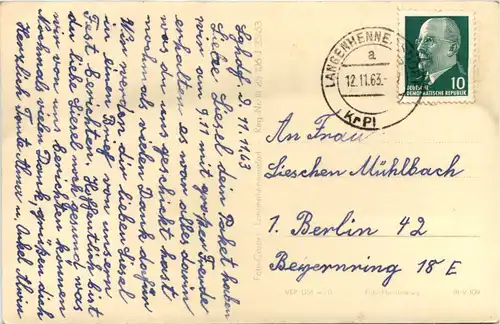 d. 11.11.63
Liebe Liesel dein Paket haben
wir am 9.11 mit großer Freude
erhalten es war alles drin
was du uns geschickt hast
nochmals vielen Dank dafür
Wir werden dir lieben Liesel
in einen Brief von unserm
Fest berichten, Hoffentlich bist
du liebe Liesel noch gesund was
wir von uns berichten können
Nochmals vielen Dank, grüßen dich
Herzlich Tante u. Onkel
LANGENHENNE
a
12.11.63
DEUTSCHE
DEMOKRATISCHE REPUBLIK
10
An Frau
Lieschen Mühlbach
1. Berlin 42
Beyernring 18 E